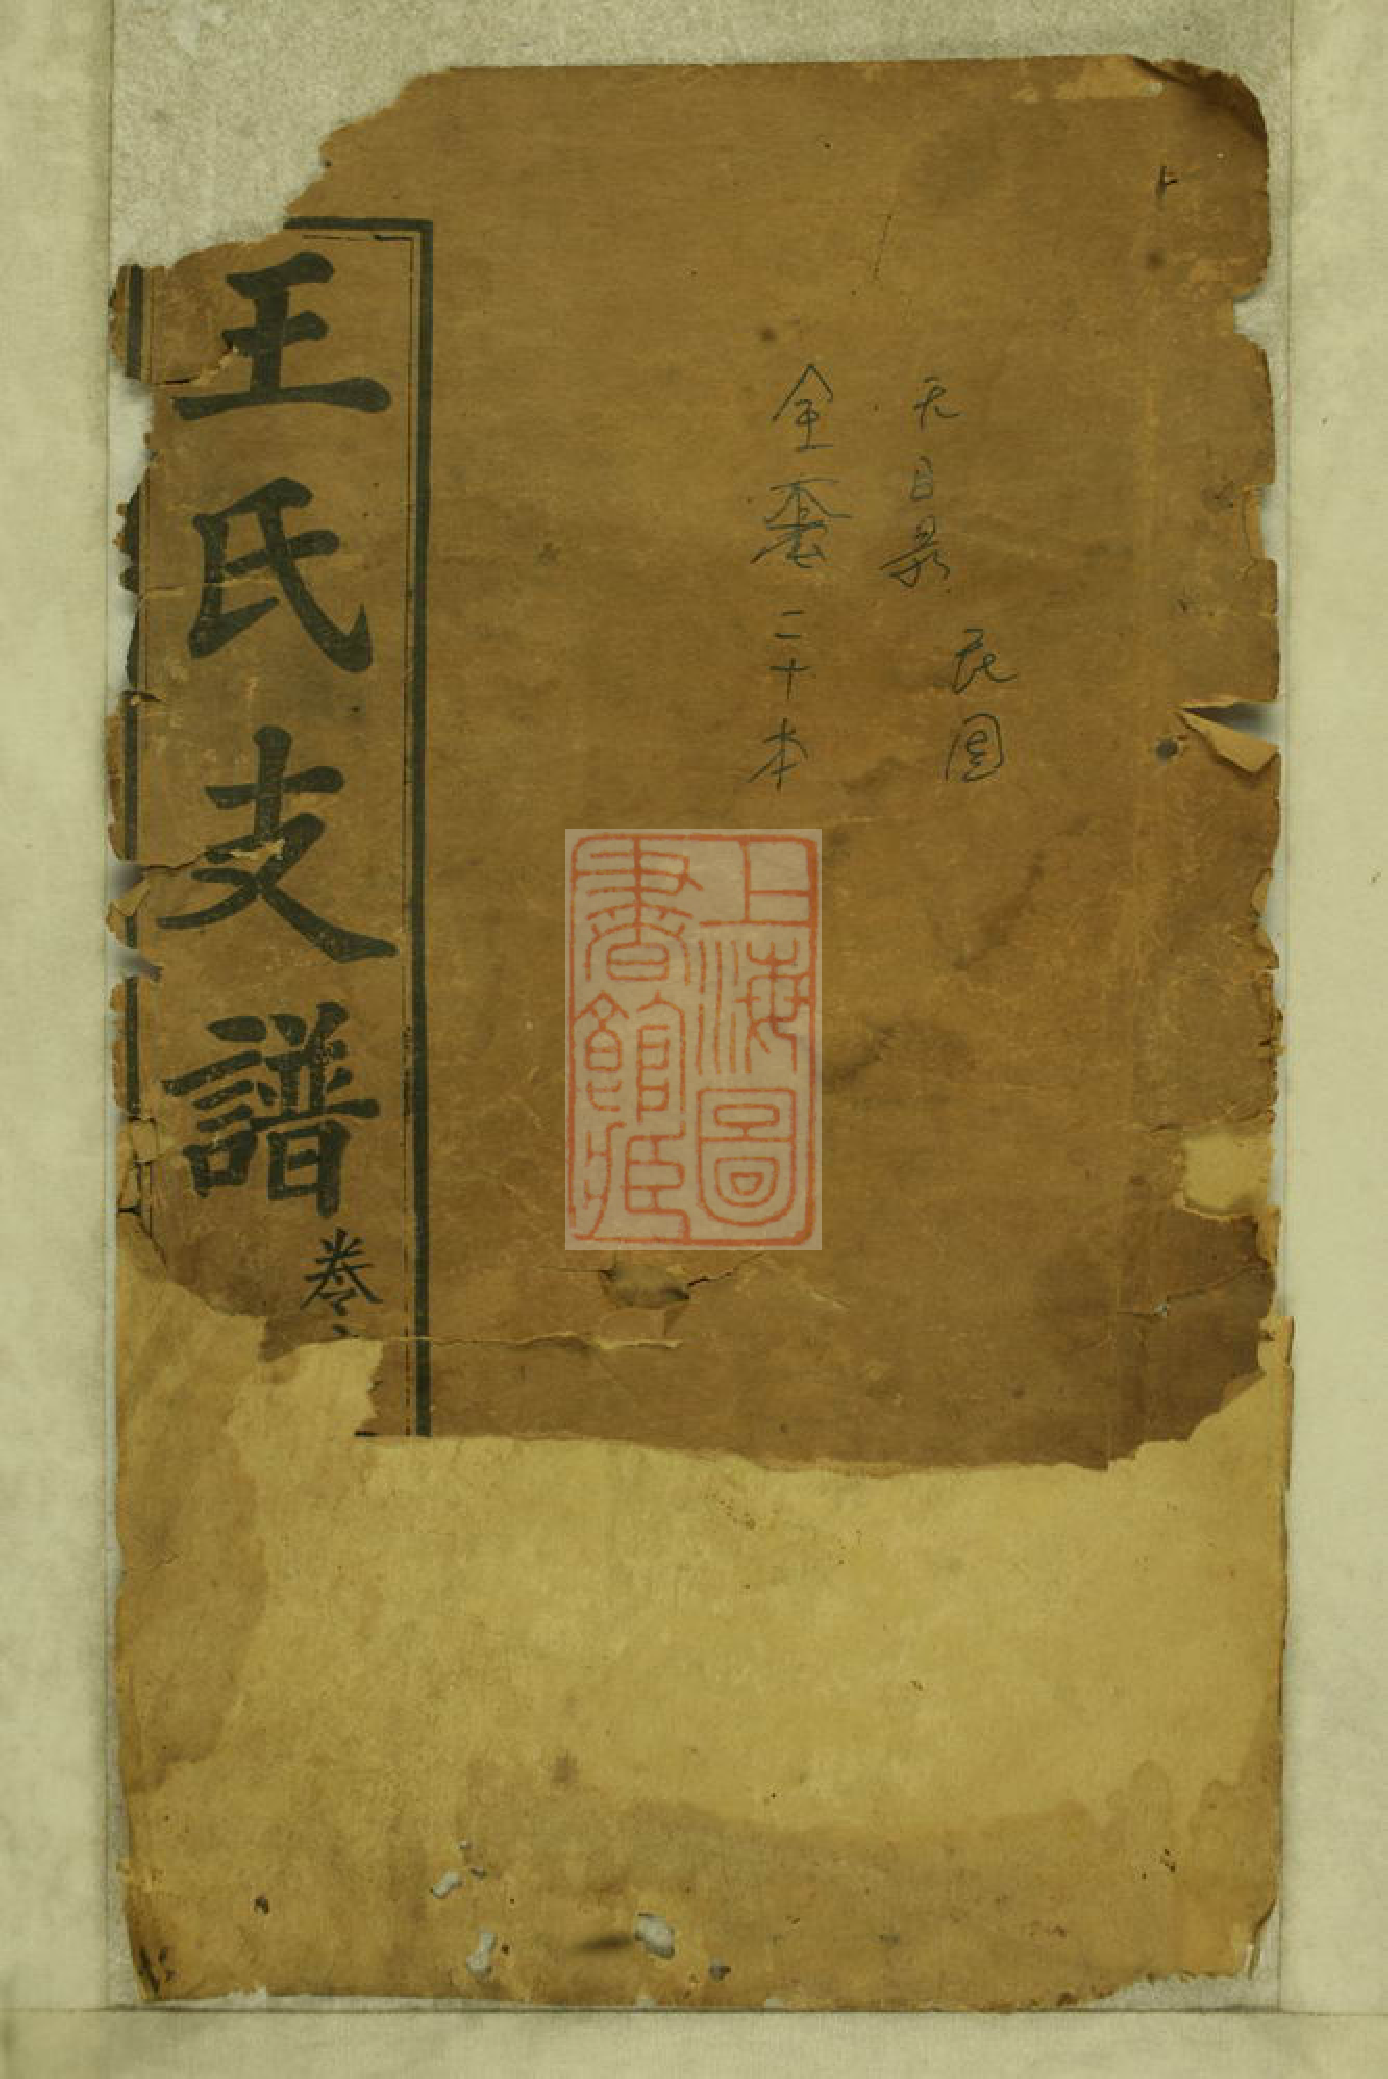 民国
无目录
全套二十本
王氏支譜
卷
上海圖
書館藏